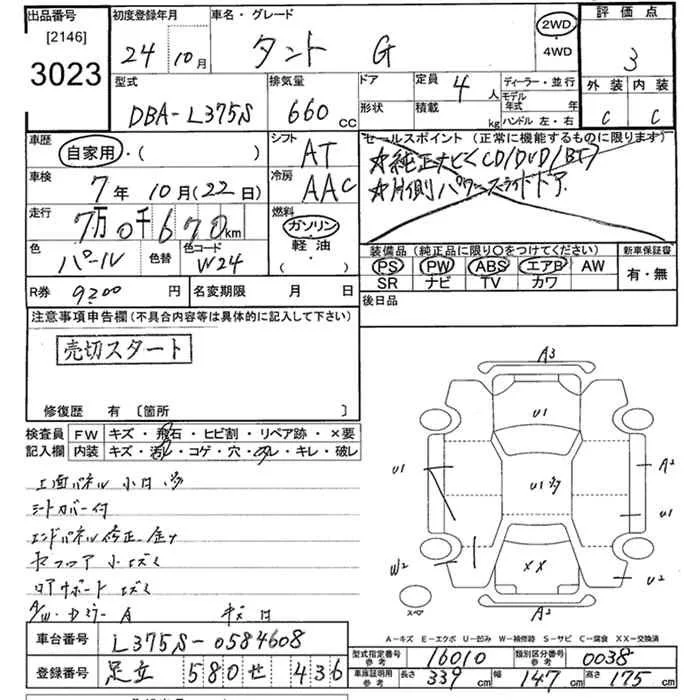 出品番号
[2146]
3023
初度登録年月
24年 10月
車名・グレード
タント G
2WD
・
4WD
評価点
3
外装 内装
C C
型式
DBA-L375S
排気量
660 CC
ドア
形状
定員 4 人
積載 kg
ディーラー・並行
モデル
年式 年
ハンドル 左・右
車歴
自家用・( )
シフト
AT
車検
7年 10月(22日)
冷房
AAC
走行
7万0千670km
燃料
ガソリン
軽油
( )
色
パール
色替
色コード
W24
セールスポイント (正常に機能するものに限ります)
☆純正ナビ(CD/DVD/BT)
☆片側パワースライドドア
装備品 (純正品に限り○をつけてください)
PS PW ABS エアB AW
SR ナビ TV カワ
新車保証書
有・無
R券 9200円
名変期限 月 日
後日品
注意事項申告欄(不具合内容等は具体的に記入して下さい)
売切スタート
修復歴 有 [箇所 ]
検査員
記入欄
FW キズ・飛石・ヒビ割・リペア跡・×要
内装 キズ・汚レ・コゲ・穴・スレ・キレ・破レ
シートカバー付
エンドパネル修正
リアサポート
A3
U1
U1
A2
U1
U1
W2
XX
U2
A2
スペア
A-キズ E-エクボ U-凹み W-補修跡 S-サビ C-腐食 XX-交換済
車台番号
L375S-0584608
登録番号
足立 580 せ 436
型式指定番号
参考
16010
類別区分番号
参考
0038
車庫証明用
参考
長さ 339cm 幅 147cm 高さ 175cm